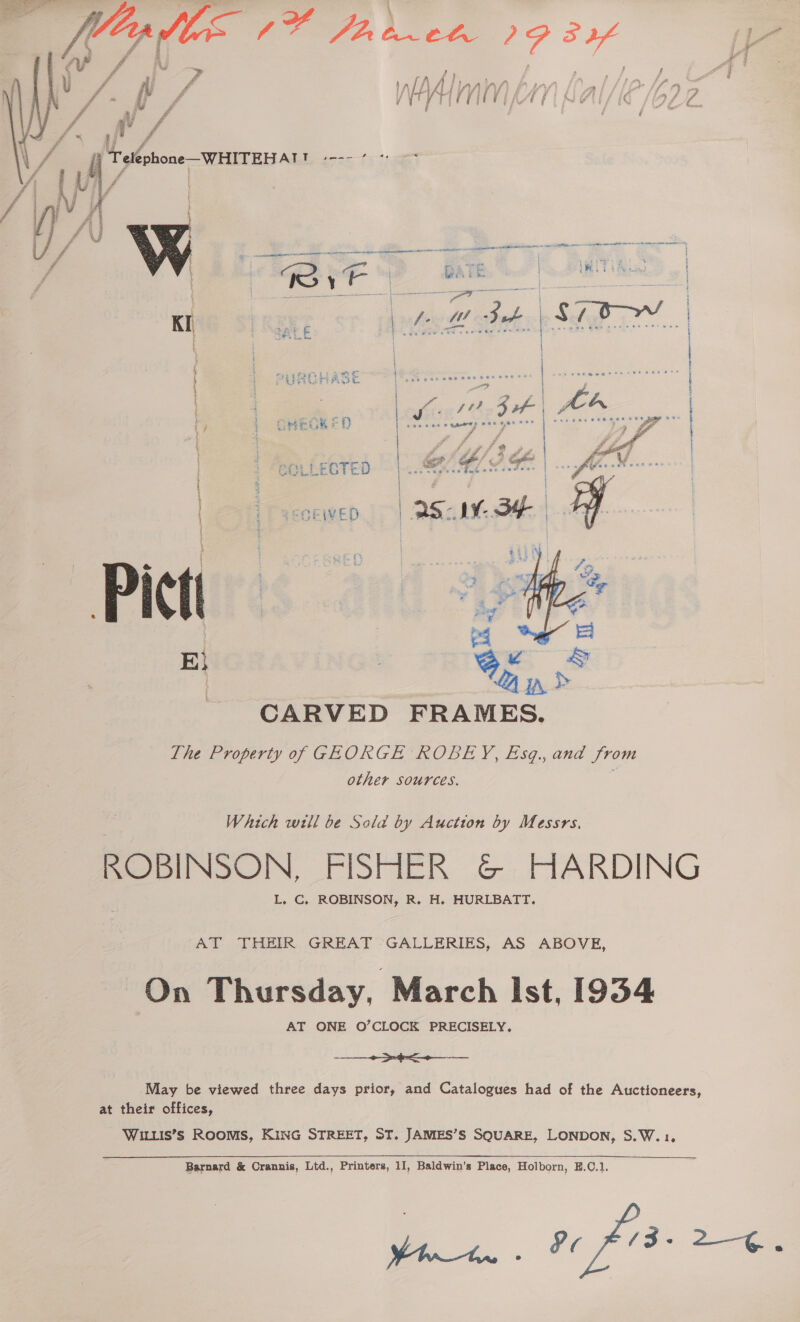 1st March 1934
Telephone—WHITEHALL
W
DATE INITIALS
KI
SALE
PURCHASE
CHECKED
COLLECTED
RECEIVED 25. IV. 34
Pict
E
CARVED FRAMES.
The Property of GEORGE ROBEY, Esq., and from
other sources.
Which will be Sold by Auction by Messrs.
ROBINSON, FISHER & HARDING
L. C. ROBINSON, R. H. HURLBATT.
AT THEIR GREAT GALLERIES, AS ABOVE,
On Thursday, March 1st, 1934
AT ONE O'CLOCK PRECISELY.
May be viewed three days prior, and Catalogues had of the Auctioneers,
at their offices,
WILLIS'S ROOMS, KING STREET, ST. JAMES'S SQUARE, LONDON, S.W. 1.
Barnard & Crannis, Ltd., Printers, 11, Baldwin's Place, Holborn, E.C.1.
£13. 2